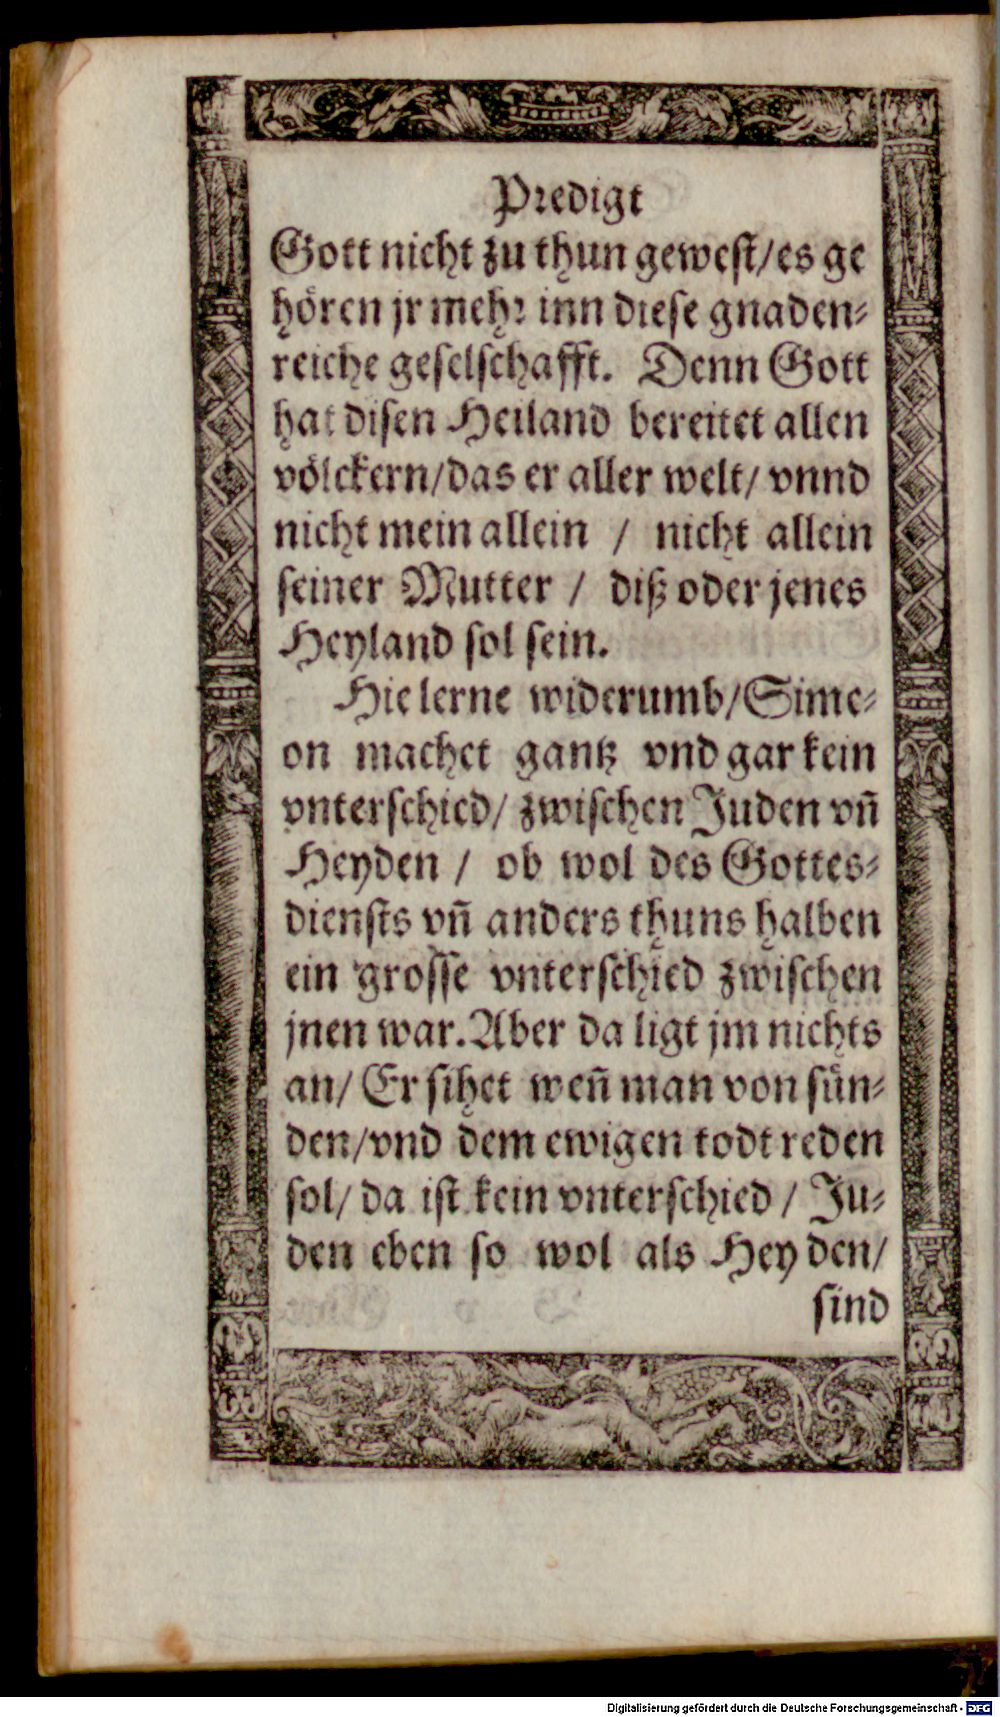 Predigt
Gott nicht zu thun gewest/es ge
hören jr mehr inn diese gnaden-
reiche geselschafft. Denn Gott
hat disen Heiland bereitet allen
völckern/das er aller welt/ vnnd
nicht mein allein / nicht allein
seiner Mutter / diß oder jenes
Heyland sol sein.
Hie lerne widerumb/Sime-
on machet gantz vnd gar kein
vnterschied/ zwischen Juden vñ
Heyden / ob wol des Gottes-
diensts vñ anders thuns halben
ein grosse vnterschied zwischen
jnen war. Aber da ligt jm nichts
an/ Er sihet weñ man von sün-
den/vnd dem ewigen todt reden
sol/ da ist kein vnterschied / Ju-
den eben so wol als Heyden/
sind
Digitalisierung gefördert durch die Deutsche Forschungsgemeinschaft - DFG